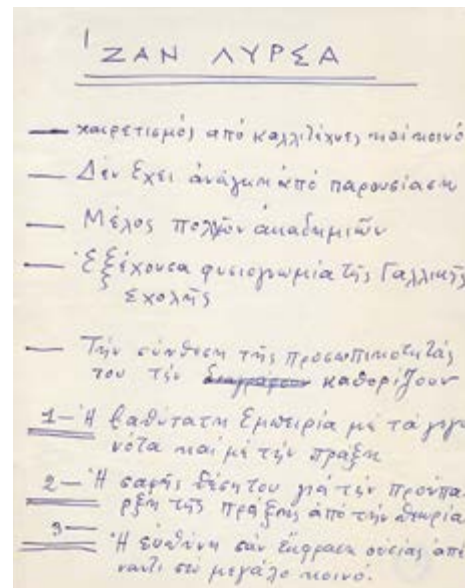 1
ΖΑΝ ΛΥΡΣΑ
— χαιρετισμός από καλλιτέχνες καί κοινό
— Δέν έχει ἀνάγκη ἀπό παρουσίαση
— Μέλος πολλῶν ἀκαδημιῶν
— Ἐξέχουσα φυσιογνωμία τῆς Γαλλικῆς
Σχολῆς
— Τήν σύνθεση τῆς προσωπικότητάς
του τήν καθορίζουν
1— Ἡ βαθύτατη ἐμπειρία μέ τά γεγο
νότα καί μέ τήν πράξη
2— Ἡ σαφής θέση του γιά τήν προϋπα
ρξη τῆς πράξης ἀπό τήν θεωρία
3—
Ἡ εὐθύνη σάν ἔκφραση οὐσίας ἀπέ
ναντι στο μεγάλο κοινό.